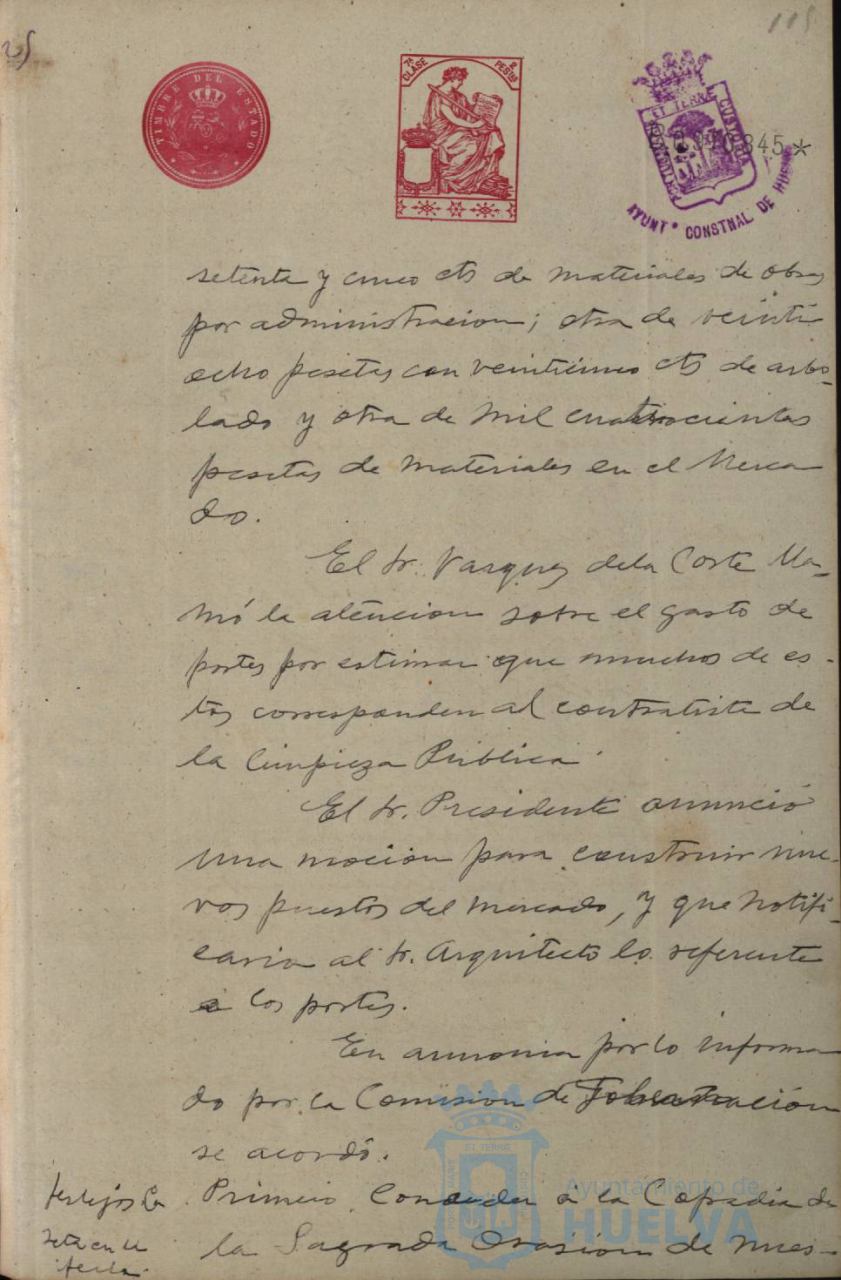 115
25
TIMBRE DEL ESTADO
7ª CLASE 2 PESTAS
ET TERRÆ CUSTODIA
PORTUS MARIS
345*
AYUNTº CONSTNAL DE HUELVA
setenta y cinco cts de materiales de obras
por administracion; otra de veinti
ocho pesetas con veinticinco cts de arbo-
lado y otra de mil cuatrocientas
pesetas de materiales en el Merca
do.
El Sr. Vazquez dela Corte lla-
mó la atencion sobre el gasto de
portes por estimar que muchos de es-
tos corresponden al contratista de
la limpieza Pública.
El Sr. Presidente anunció
una mocion para construir nue-
vos puestos del mercado, y que notifi-
caria al Sr. Arquitecto lo referente
a los portes.
En armonia por lo informa
do por la Comision de
se acordó.
festejos
Primero. Conceder á la Cofradia de
la Sagrada Oracion de nues-
Ayuntamiento de
HUELVA